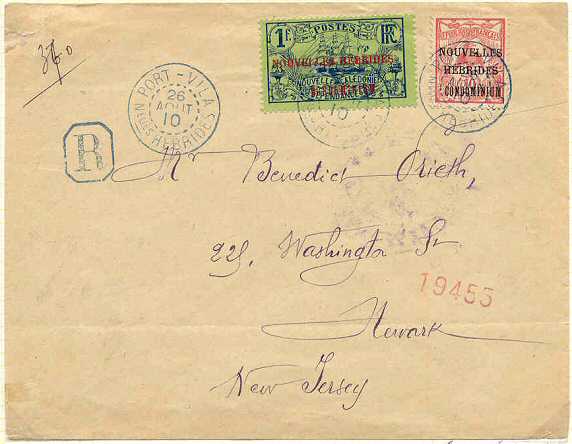 1F POSTES RF
NOUVELLES HEBRIDES
NOUVELLE CALÉDONIE
CONDOMINIUM
NOUVELLES
HÉBRIDES
CONDOMINIUM
10
PORT-VILA
26
AOUT
10
Nlles HEBRIDES
10
R
Mr Benedict Prieth,
225, Washington St.
19455
Newark
New Jersey